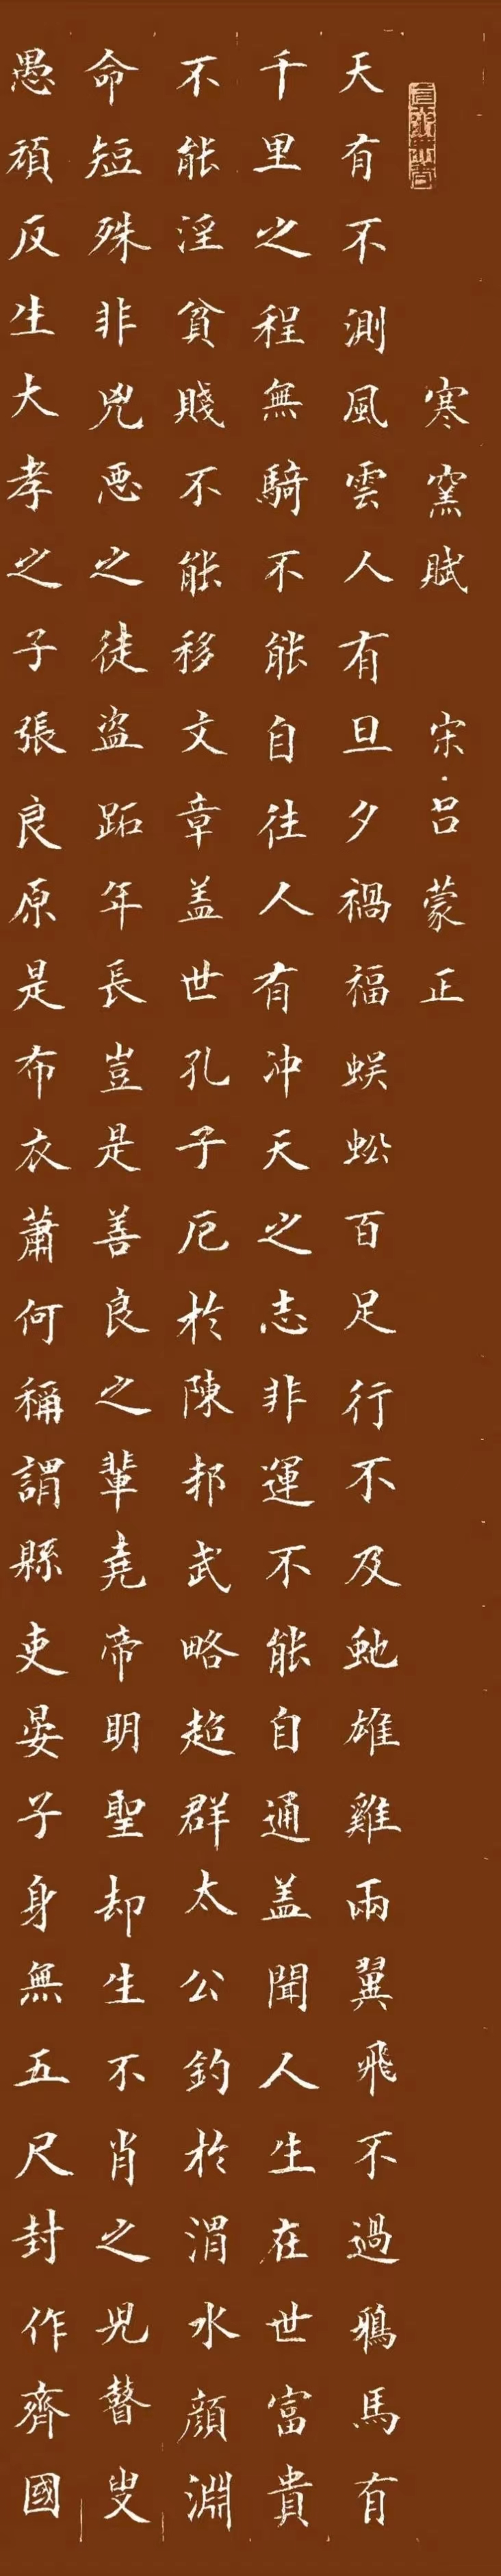 寒窯賦 宋·呂蒙正
天有不測風雲人有旦夕禍福蜈蚣百足行不及虵雄雞兩翼飛不過鴉馬有
千里之程無騎不能自往人有冲天之志非運不能自通盖聞人生在世富貴
不能淫貧賤不能移文章盖世孔子厄於陳邦武略超群太公釣於渭水顔淵
命短殊非兇惡之徒盜跖年長豈是善良之輩堯帝明聖却生不肖之兒瞽叟
愚頑反生大孝之子張良原是布衣蕭何稱謂縣吏晏子身無五尺封作齊國